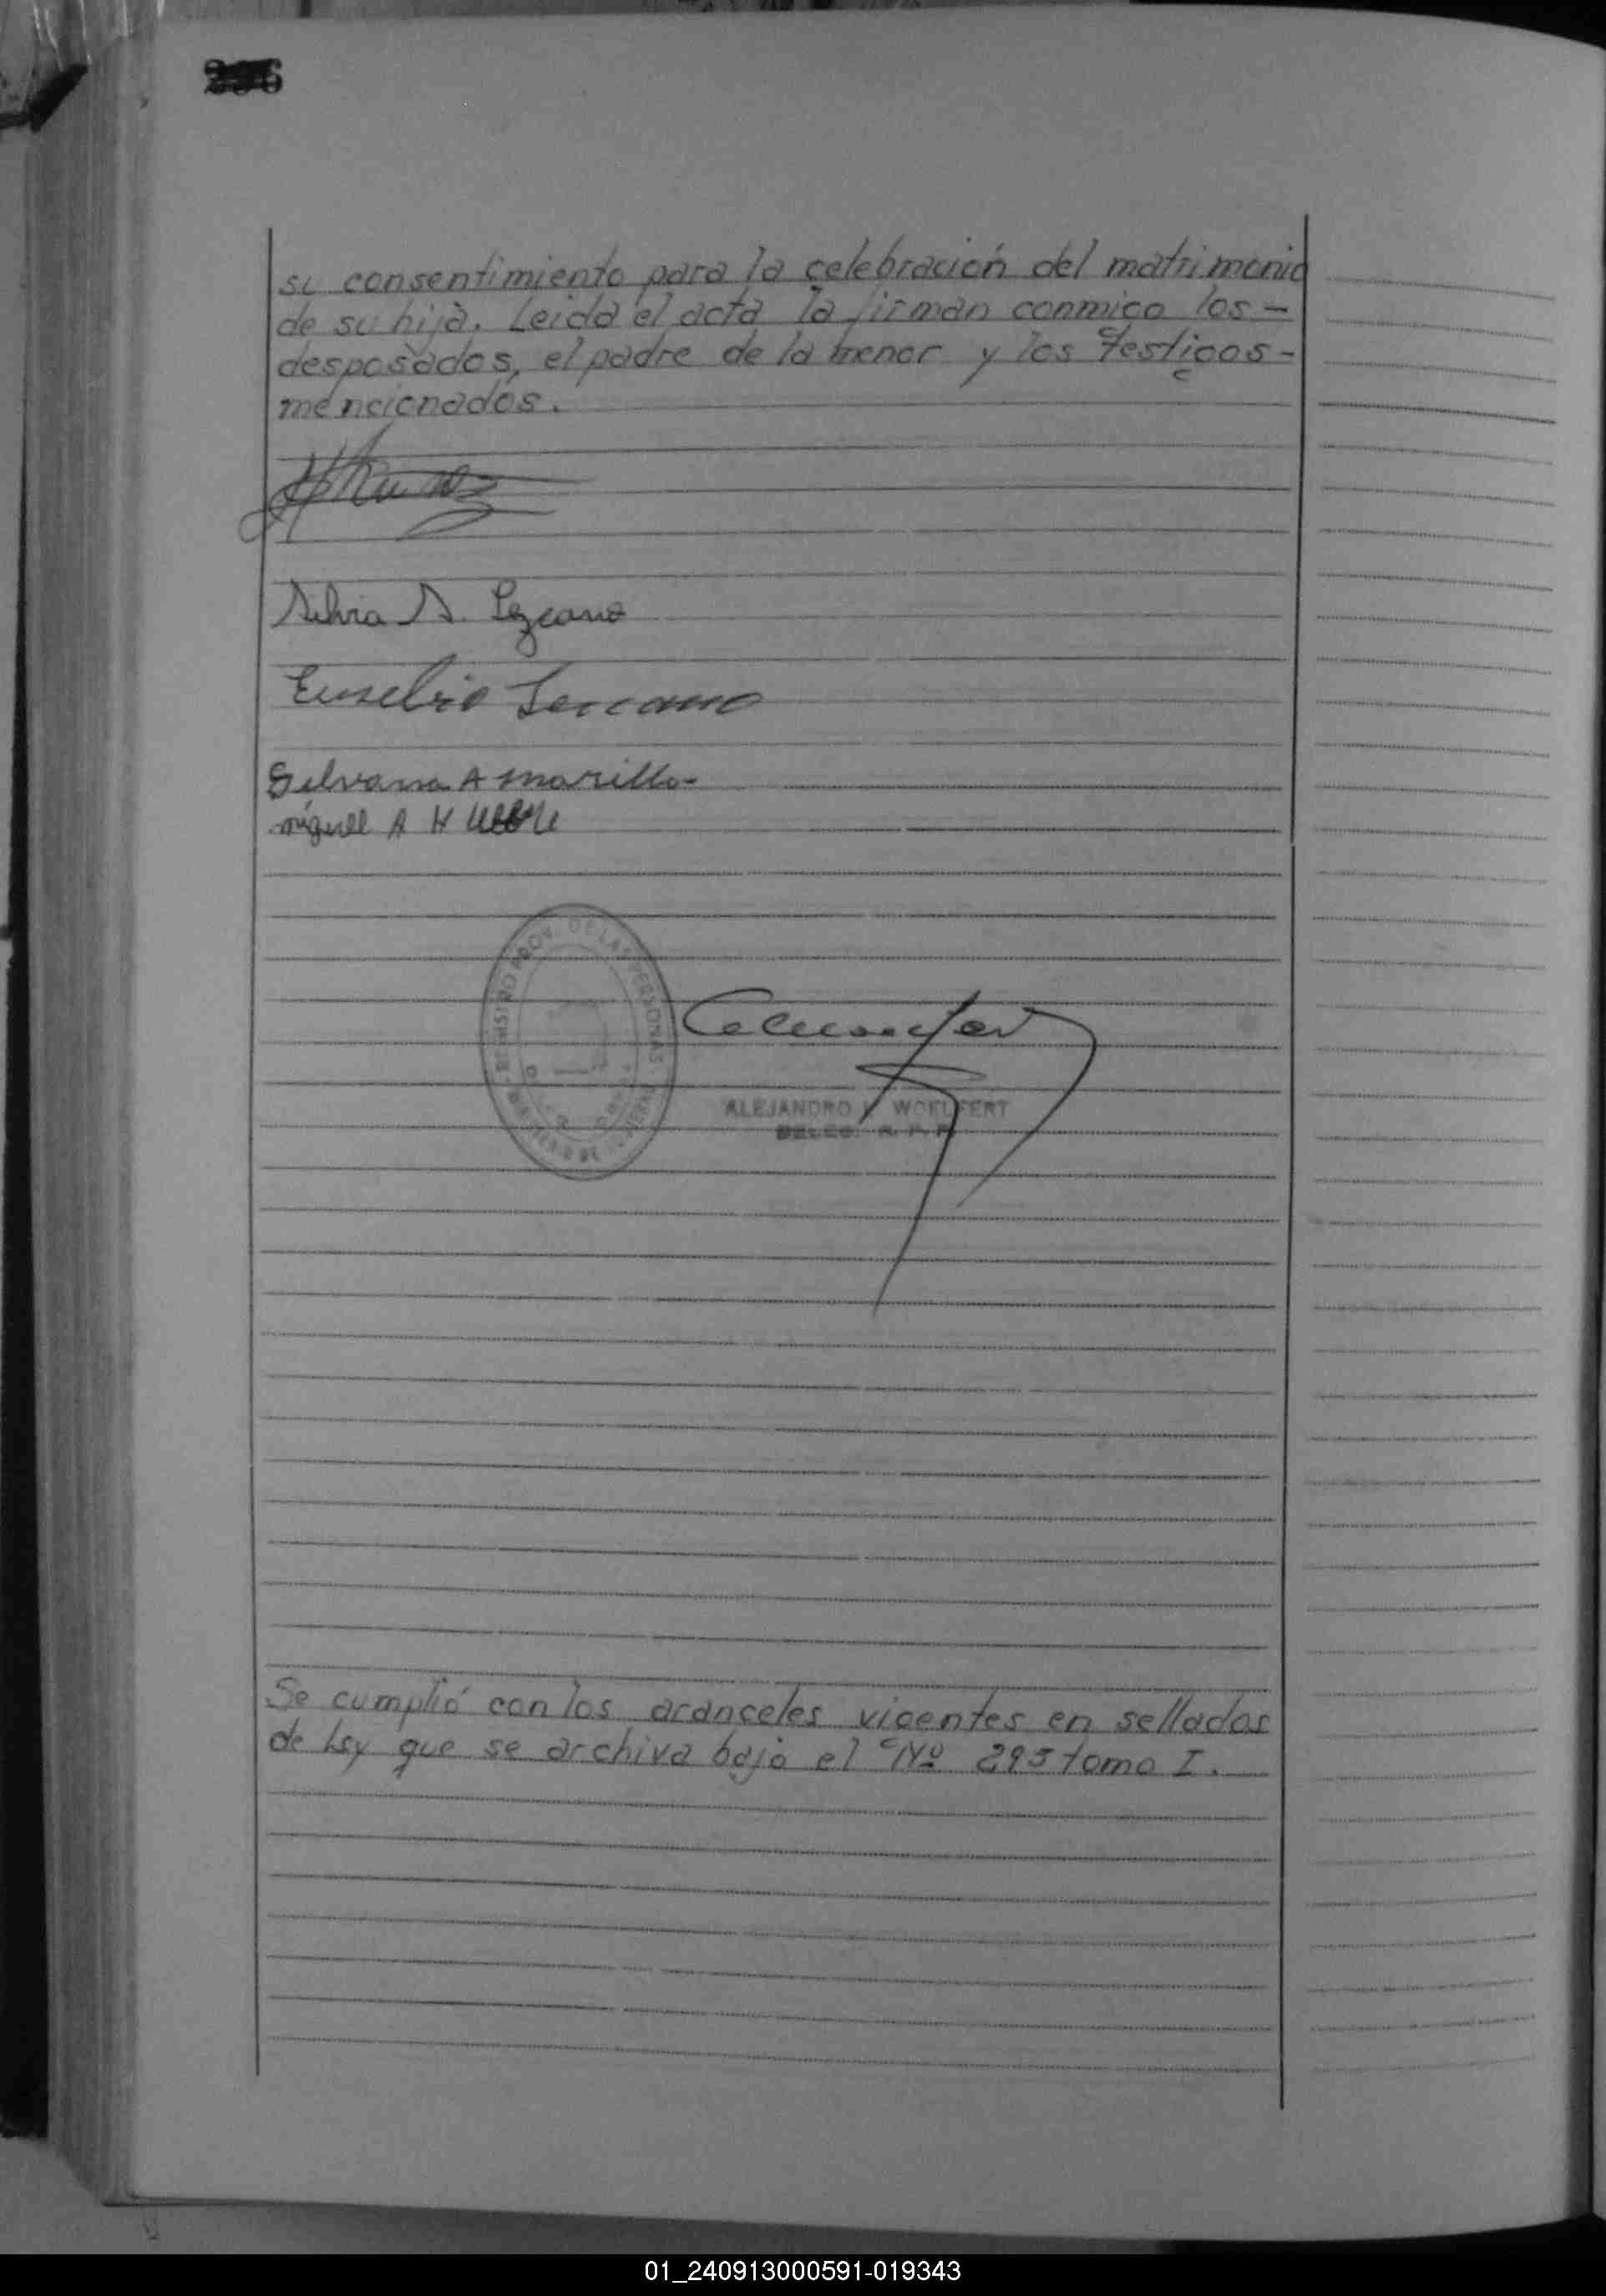 su consentimiento para la celebración del matrimonio
de su hija. Leida el acta la firman conmigo los -
desposados, el padre de la menor y los testigos -
mencionados.
Silvia A. Lezcano
Eusebio Lezcano
Silvana Amarilla
miguel A H
REGISTRO PROV. DE LAS PERSONAS
ALEJANDRO WOELFERT
DELEG. R. P. P.
Se cumplió con los aranceles vigentes en sellados
de Ley que se archiva bajo el Nº 295 tomo I.
01_240913000591-019343